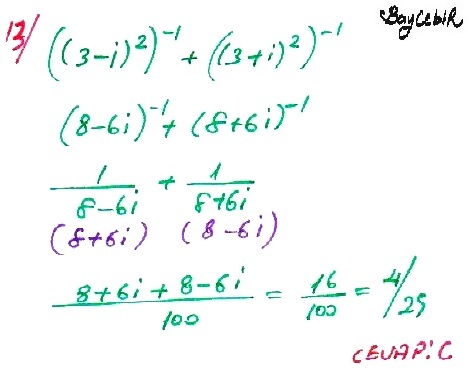 BayCebiR
13/ ((3-i)²)⁻¹ + ((3+i)²)⁻¹
(8-6i)⁻¹ + (8+6i)⁻¹
1/(8-6i) + 1/(8+6i)
(8+6i) (8-6i)
(8+6i+8-6i)/100 = 16/100 = 4/25
CEVAP: C